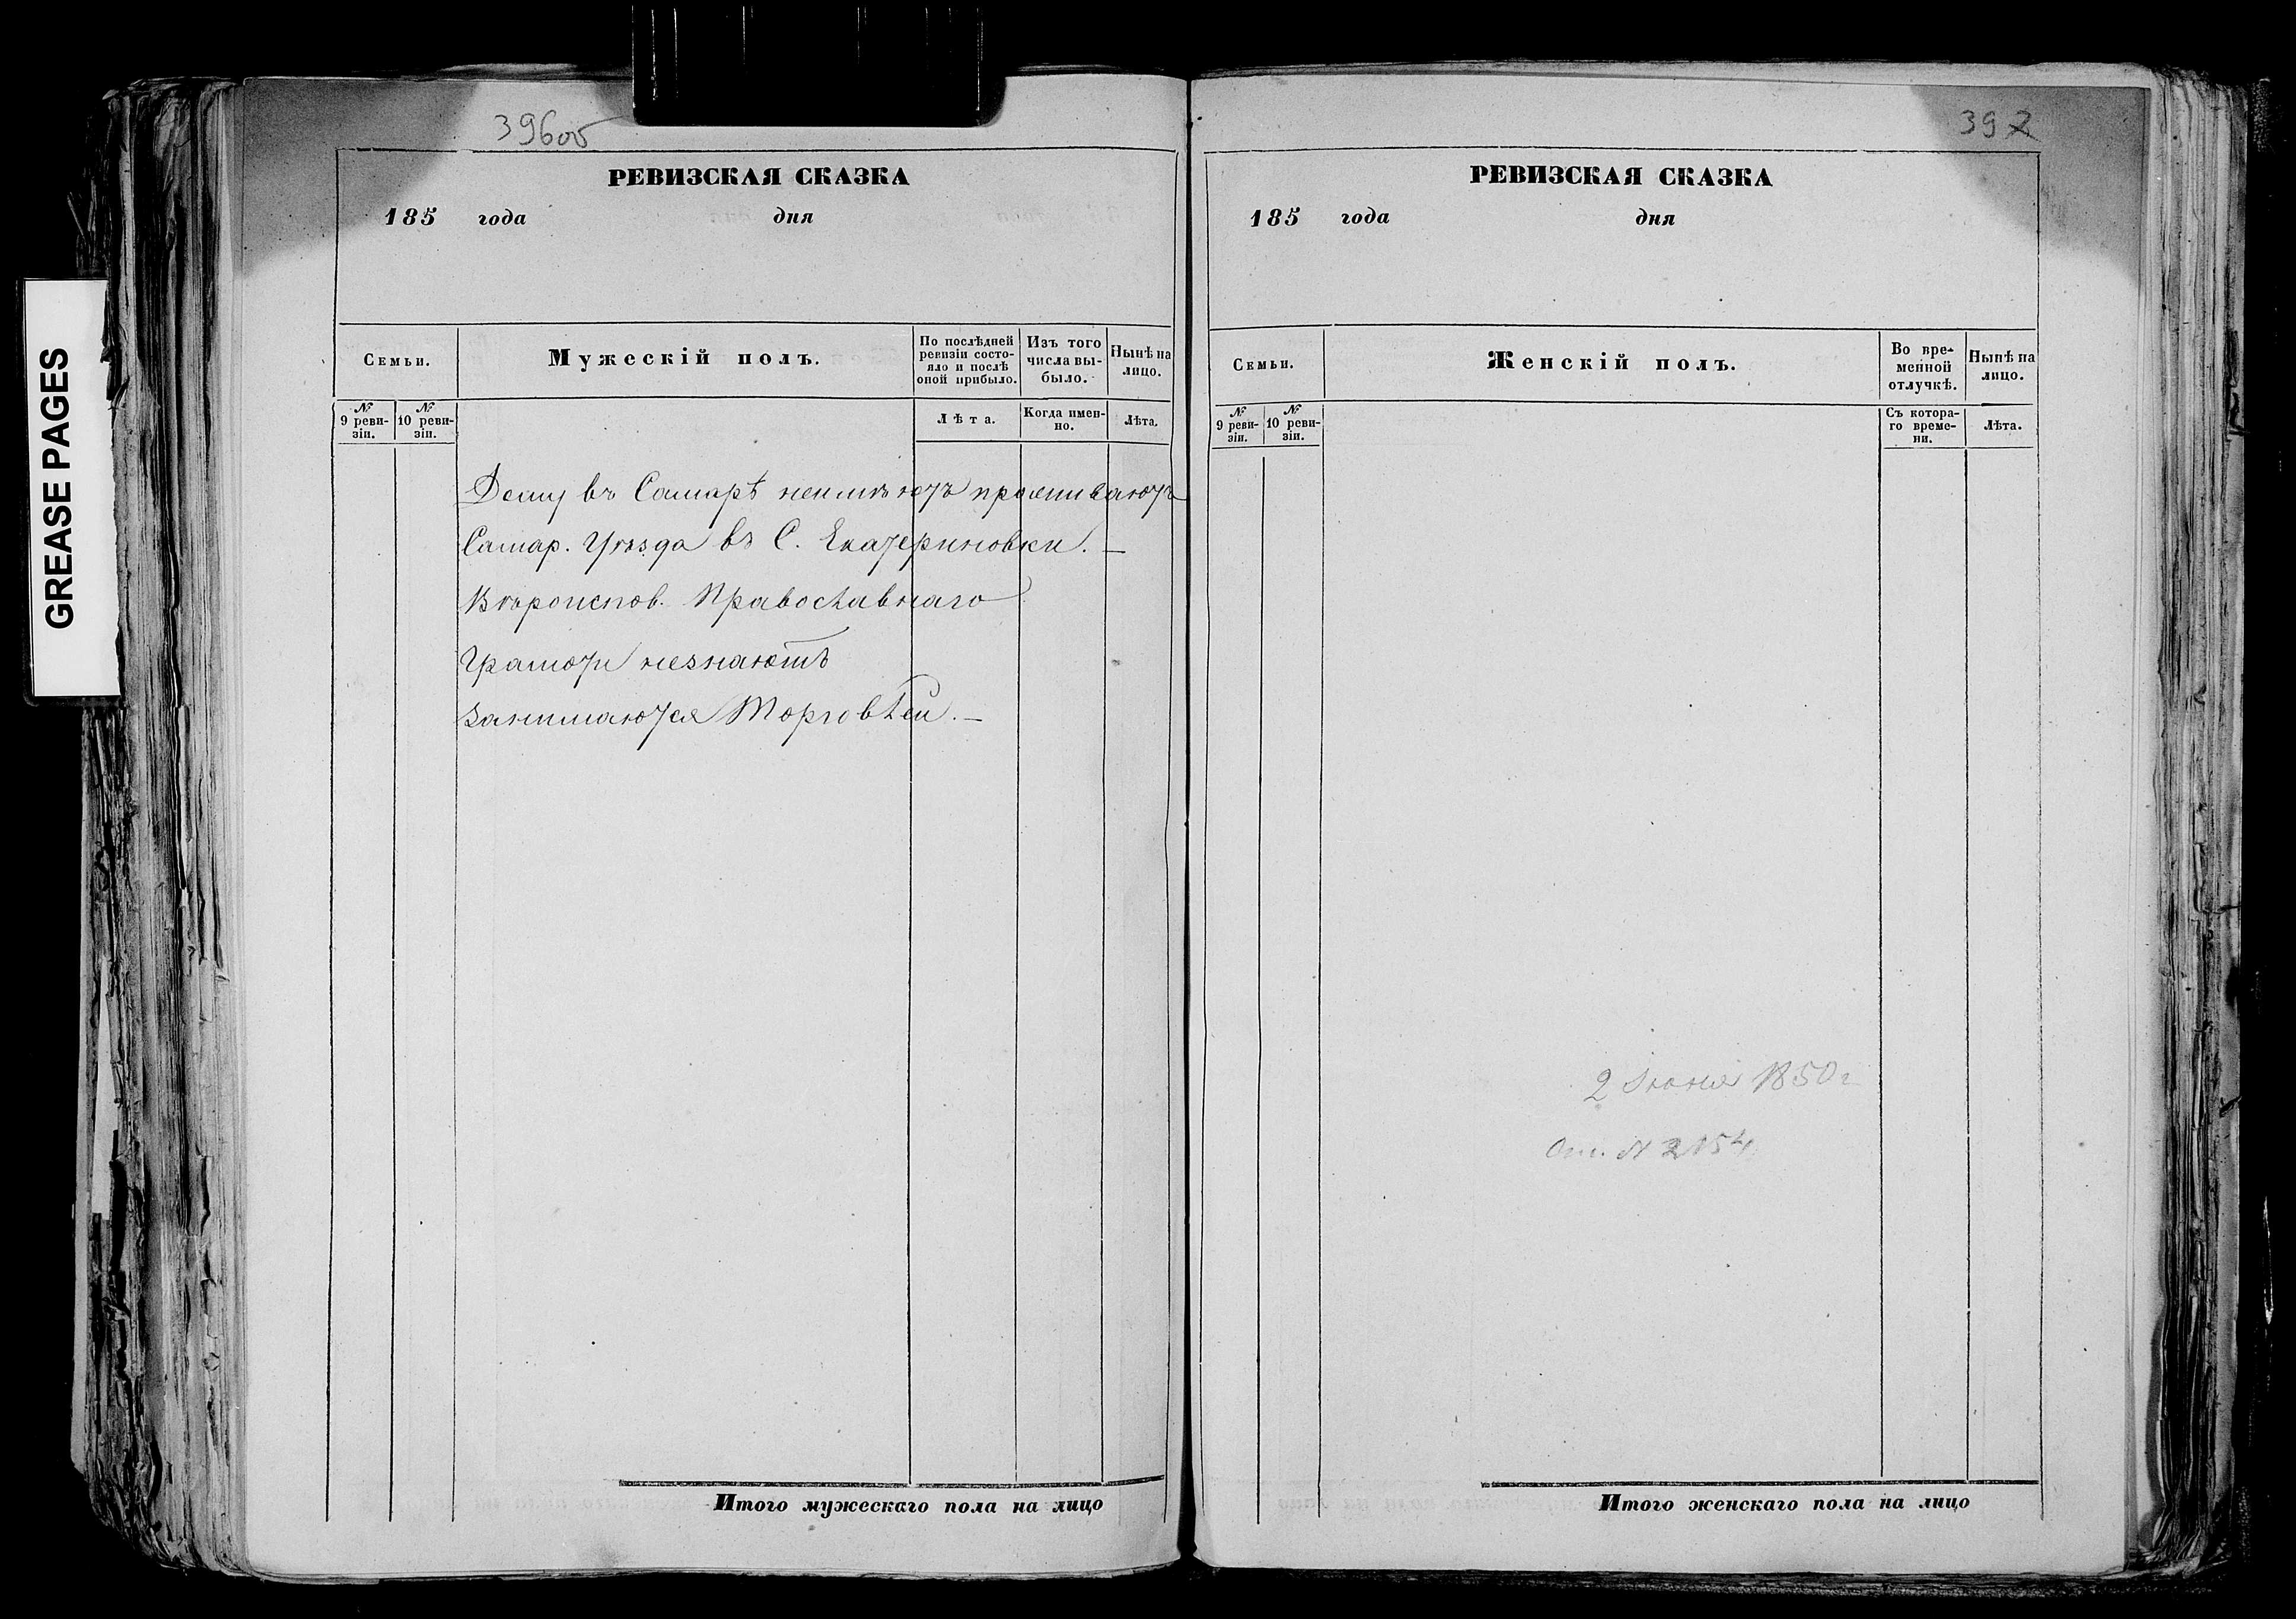 GREASE PAGES
396об
РЕВИЗСКАЯ СКАЗКА
185 года дня
Семьи.
Мужескій полъ.
По послѣдней ревизіи состояло и послѣ оной прибыло.
Изъ того числа выбыло.
Нынѣ на лицо.
№ 9 ревизіи.
№ 10 ревизіи.
Лѣта.
Когда именно.
Лѣта.
Дому въ Самарѣ неимѣютъ проживаютъ
Самар. Уѣзда въ С. Екатериновки. —
Вѣроиспов. Православнаго
Грамоти незнаютъ
Занимаются Торговлеи. —
Итого мужескаго пола на лицо
397
РЕВИЗСКАЯ СКАЗКА
185 года дня
Семьи.
Женскій полъ.
Во временной отлучкѣ.
Нынѣ на лицо.
№ 9 ревизіи.
№ 10 ревизіи.
Съ котораго времени.
Лѣта.
2 Іюня 1850 г
От. № 2154
Итого женскаго пола на лицо